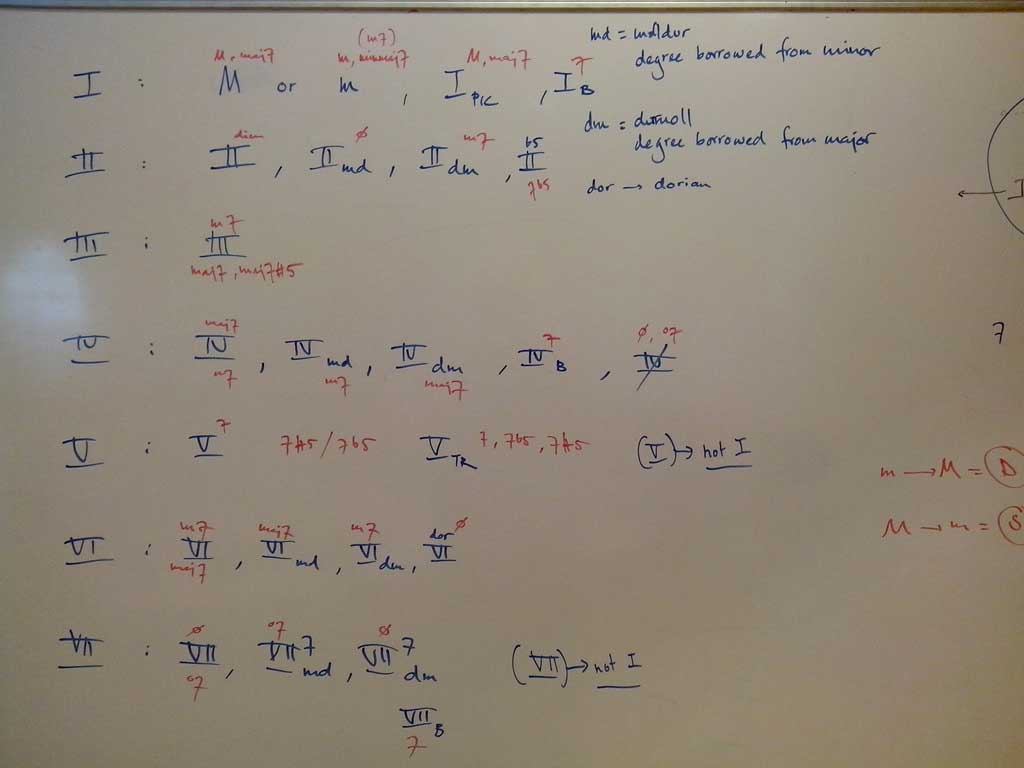 (m7)
M, maj7 m, minmaj7 M, maj7 7
I : M or m , I PIC , I B
md = molldur
degree borrowed from minor
dm = durmoll
degree borrowed from major
dor → dorian
dim ø m7 b5
II : II , II md , II dm , II
7b5
m7
III : III
maj7, maj7#5
maj7 7 ø, o7
IV : IV , IV md , IV dm , IV B , IV
m7 m7 maj7
7
V : V 7 7#5/7b5 V TR 7, 7b5, 7#5 (V) → not I
m → M = D
M → m = S
m7 maj7 m7 dor ø
VI : VI , VI md , VI dm , VI
maj7
ø o7 ø
VII : VII , VII 7 md , VII 7 dm (VII) → not I
o7
VII B
7